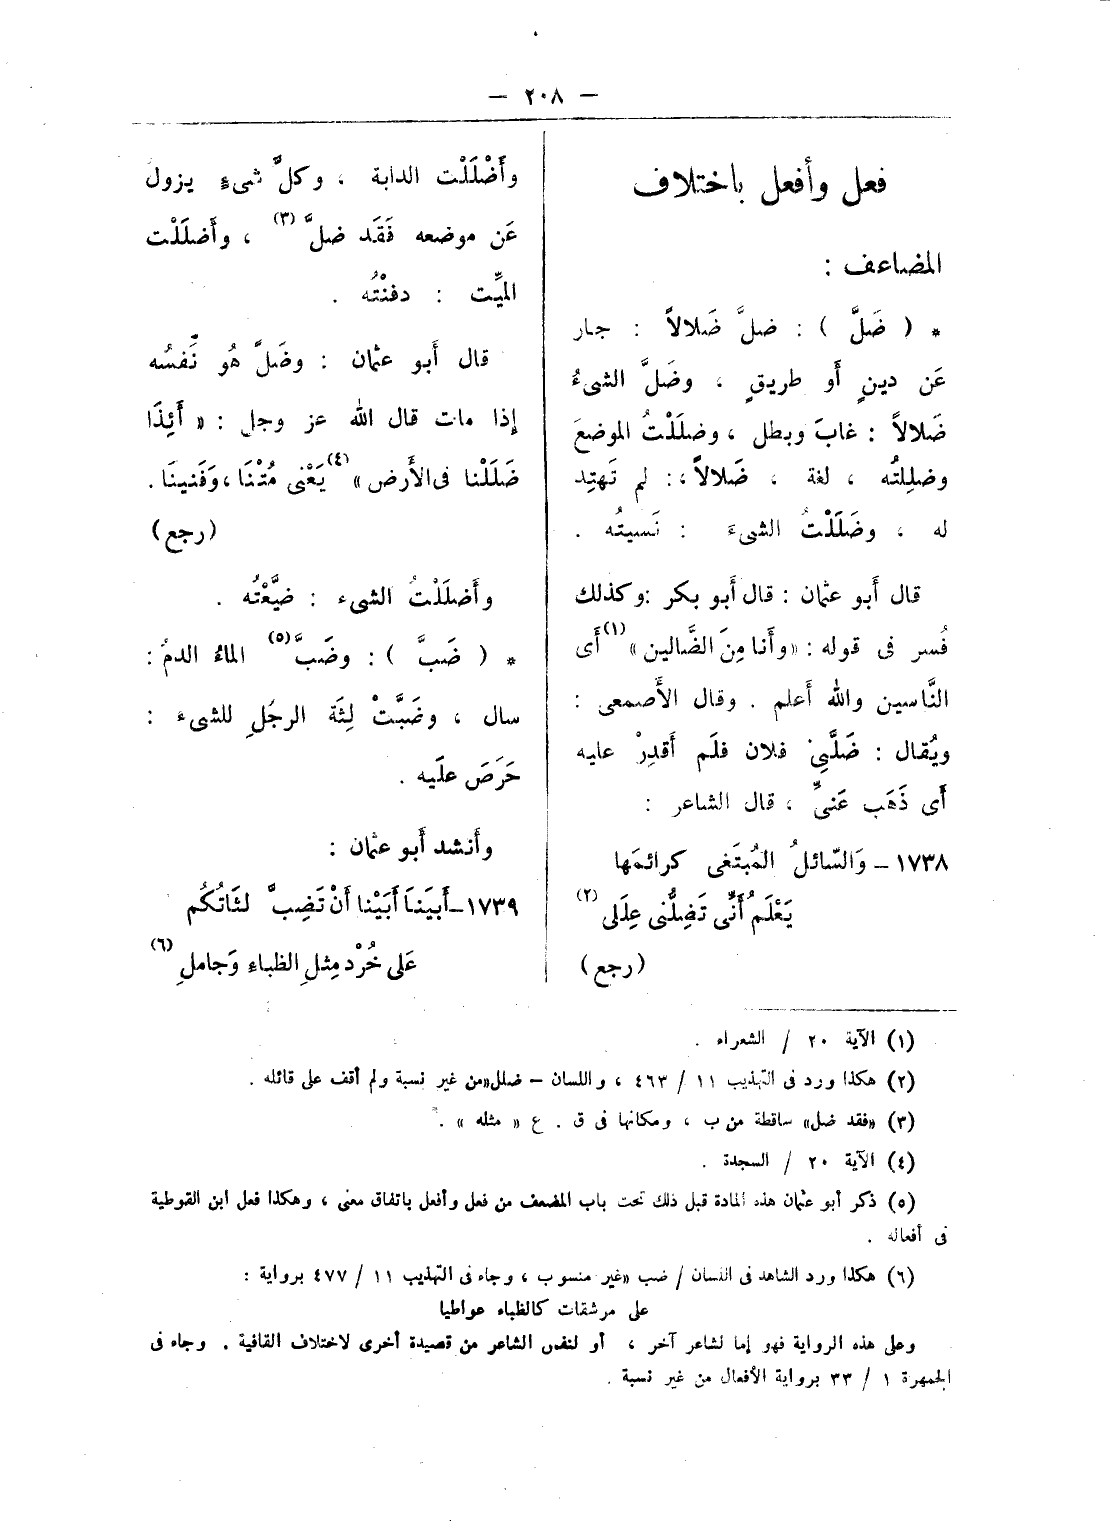 — ٢٠٨ —
فعل وأفعل باختلاف
المضاعف :
* ( ضَلَّ ) : ضلَّ ضَلالاً : جار
عَن دينٍ أَو طريقٍ ، وضَلَّ الشىءُ
ضَلالاً : غابَ وبطل ، وضلَلْتُ الموضعَ
وضلِلتُه ، لغة ، ضَلالاً ،: لم تَهتِد
له ، وضَلَلْتُ الشىءَ : نَسيتُه .
قال أَبو عثمان : قال أَبو بكر :وكذلك
فُسر فى قوله : «وأَنا مِنَ الضَّالين» (١) أَى
النَّاسين والله أَعلم . وقال الأَصمعى :
ويُقال : ضَلَّنِى فلان فلَم أَقدِرْ عليه
أَى ذَهَب عَنىِّ ، قال الشاعر :
١٧٣٨ – وَالسّائلُ المُبتَغى كرائمَها
يَعْلَمُ أَنِّى تَضِلُّنى عِلَلى (٢)
(رجع)
وأَضْلَلْت الدابة ، وكلُّ شىءٍ يزول
عَن موضعه فَقَد ضلَّ (٣) ، وأَضلَلْت
الميِّت : دفنْتُه .
قال أَبو عثمان : وضَلَّ هُو نَفسُه
إِذا مات قال الله عز وجل : « أَئِذَا
ضَلَلْنا فى الأَرض » (٤) يَعْنى مُتْنَا ، وَفَنينَا .
(رجع)
وأَضلَلْتُ الشىء : ضيَّعْتُه .
* ( ضَبَّ ) : وضَبَّ (٥) الماءُ الدمُ :
سال ، وضَبَّتْ لِثَة الرجُلِ للشىءَ :
حَرَصَ علَيه .
وأَنشد أَبو عثمان :
١٧٣٩–أَبَينَا أَبَيْنا أَنْ تَضِبَّ لثَاتُكُم
عَلى خُرْد مِثلِ الظباءِ وَجاملِ (٦)
(١) الآية ٢٠ / الشعراء .
(٢) هكذا ورد فى التهذيب ١١ / ٤٦٣ ، واللسان – ضلل«من غير نسبة ولم أقف على قائله .
(٣) «فقد ضل» ساقطة من ب ، ومكانها فى ق . ع « مثله » .
(٤) الآية ٢٠ / السجدة .
(٥) ذكر أبو عثمان هذه المادة قبل ذلك تحت باب المضعف من فعل وأفعل باتفاق معنى ، وهكذا فعل ابن القوطية
فى أفعاله .
(٦) هكذا ورد الشاهد فى اللسان / ضب «غير منسوب ، وجاء فى التهذيب ١١ / ٤٧٧ برواية :
على مرشقات كالظباء عواطيا
وعلى هذه الرواية فهو إما لشاعر آخر ، أو لنفس الشاعر من قصيدة أخرى لاختلاف القافية . وجاء فى
الجمهرة ١ / ٣٣ برواية الأفعال من غير نسبة .